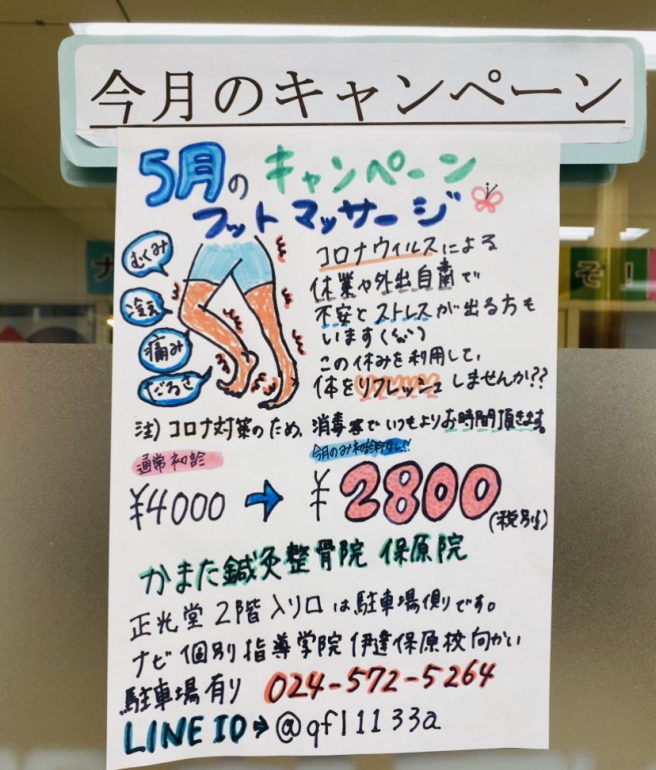 今月のキャンペーン
5月のキャンペーン
フットマッサージ
むくみ
冷え
痛み
だるさ
コロナウィルスによる
休業や外出自粛で
不安とストレスが出る方も
います
この休みを利用して、
体をリフレッシュしませんか??
注) コロナ対策のため、消毒等でいつもよりお時間頂きます。
通常初診
今月のみ初診料なし!!
¥4000 → ¥2800
(税別)
かまた鍼灸整骨院 保原院
正光堂 2階 入り口は駐車場側です。
ナビ個別指導学院 伊達保原校向かい
駐車場有り 024-572-5264
LINE ID→@qfl1133a
ナ
ぞ!